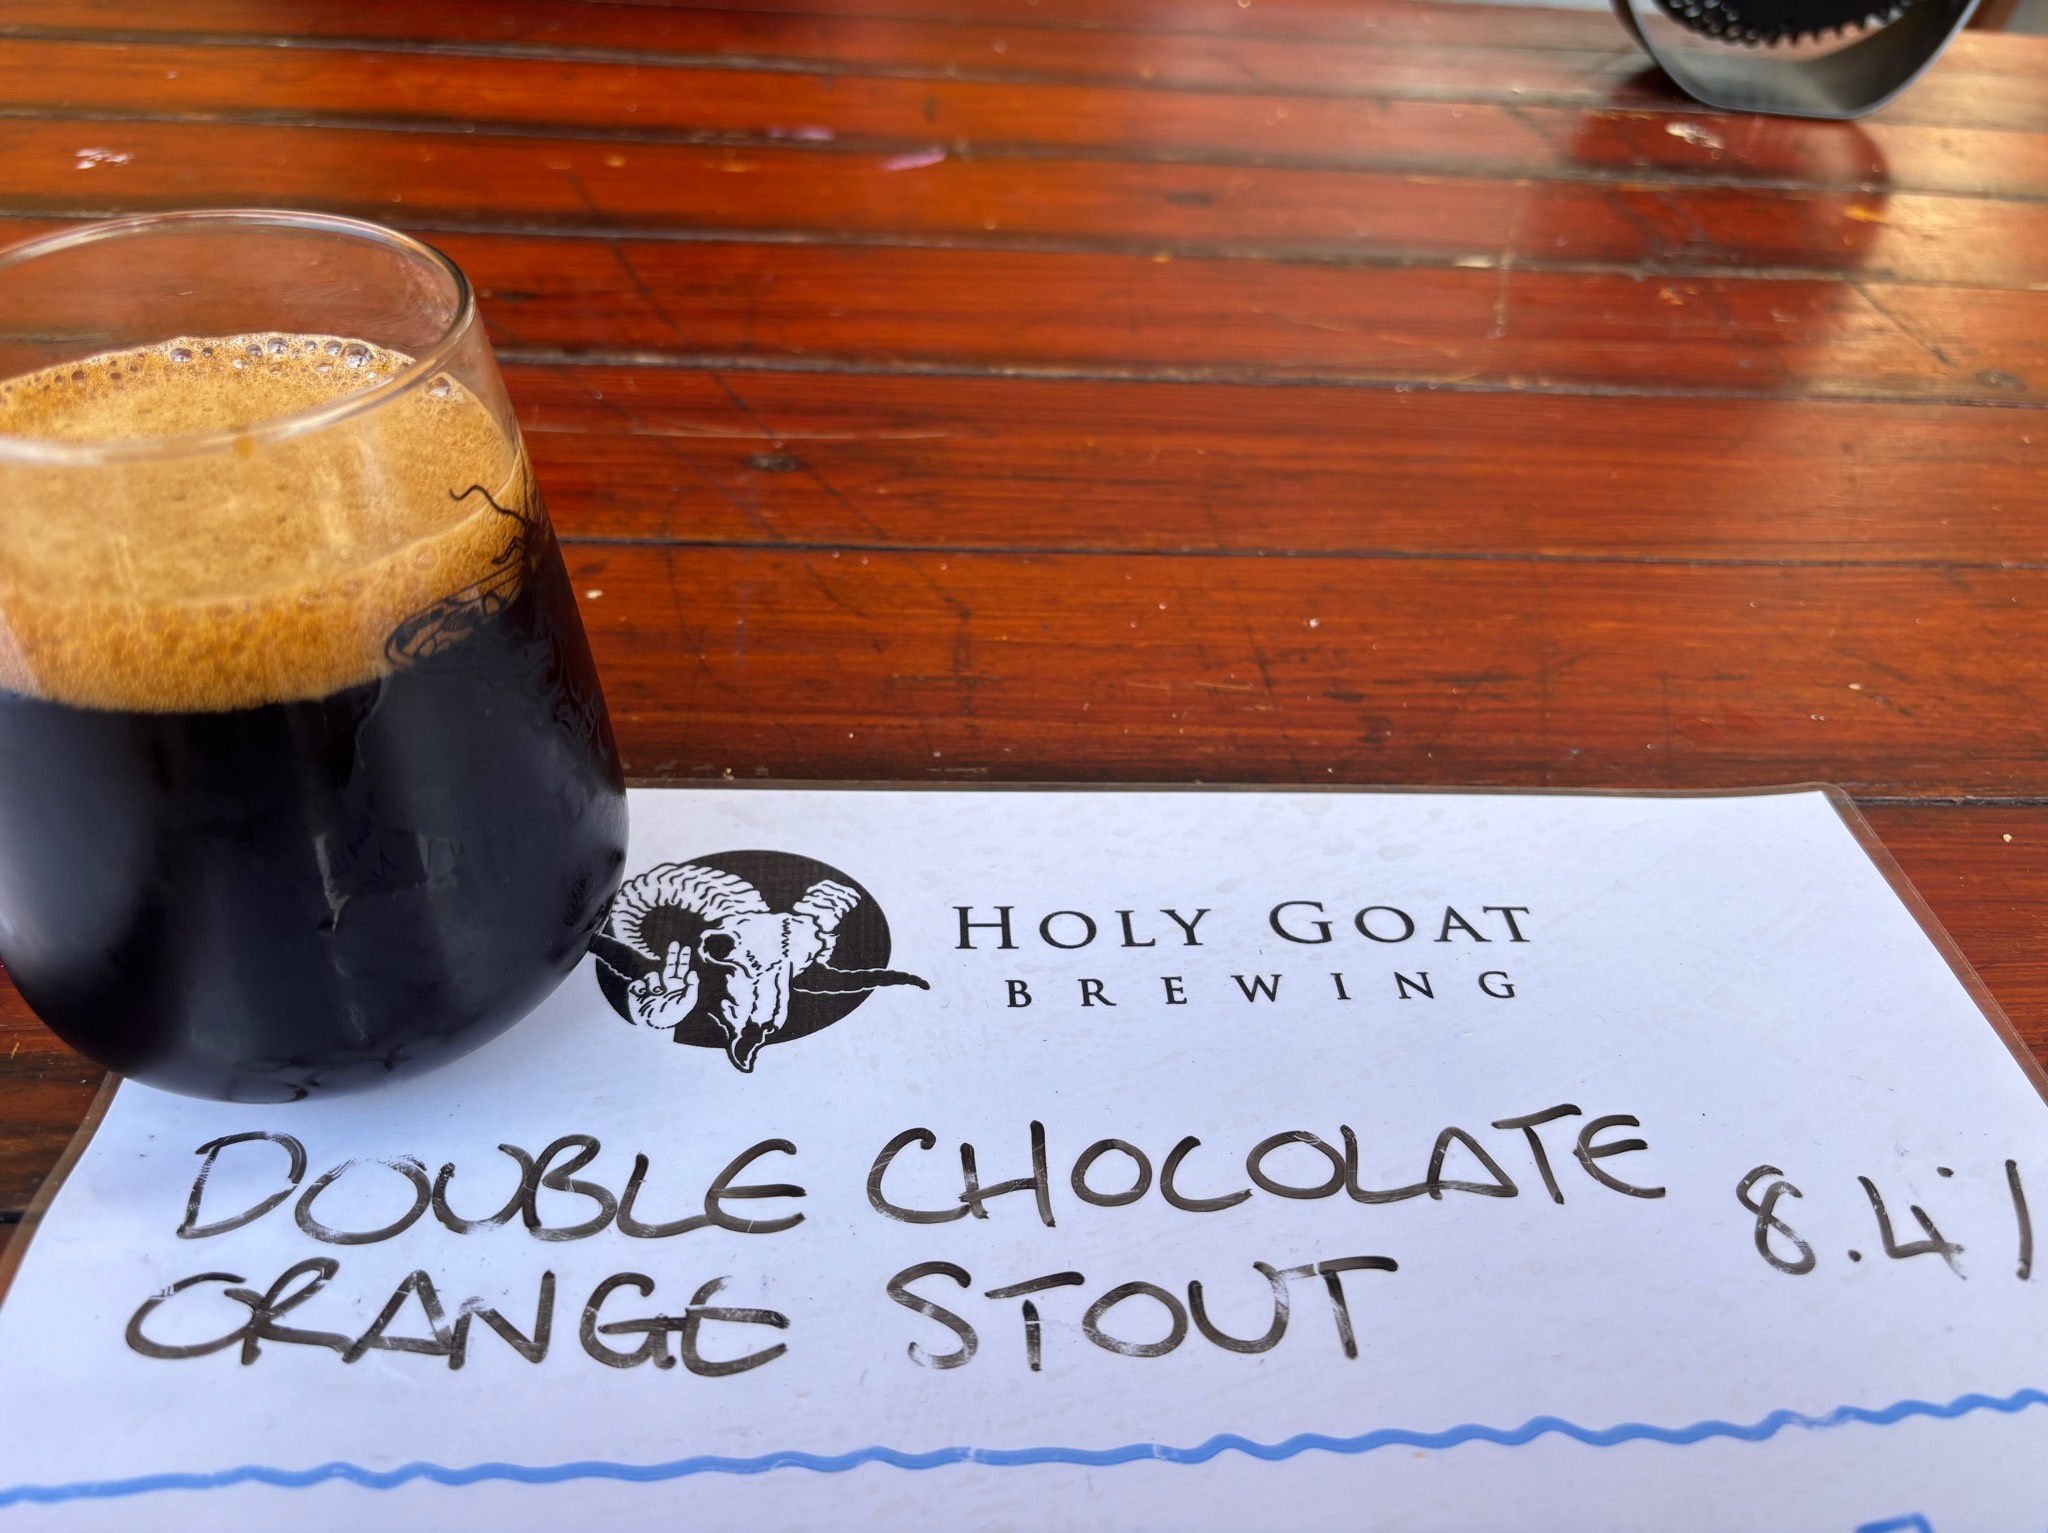 HOLY GOAT
BREWING
DOUBLE CHOCOLATE
ORANGE STOUT
8.4%